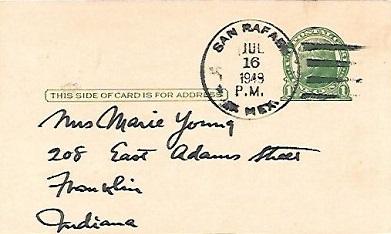 SAN RAFAEL
JUL
16
1949
P.M.
N. MEX.
THIS SIDE OF CARD IS FOR ADDRESS
1 1
Mrs Marie Young
208 East Adams Street
Franklin
Indiana